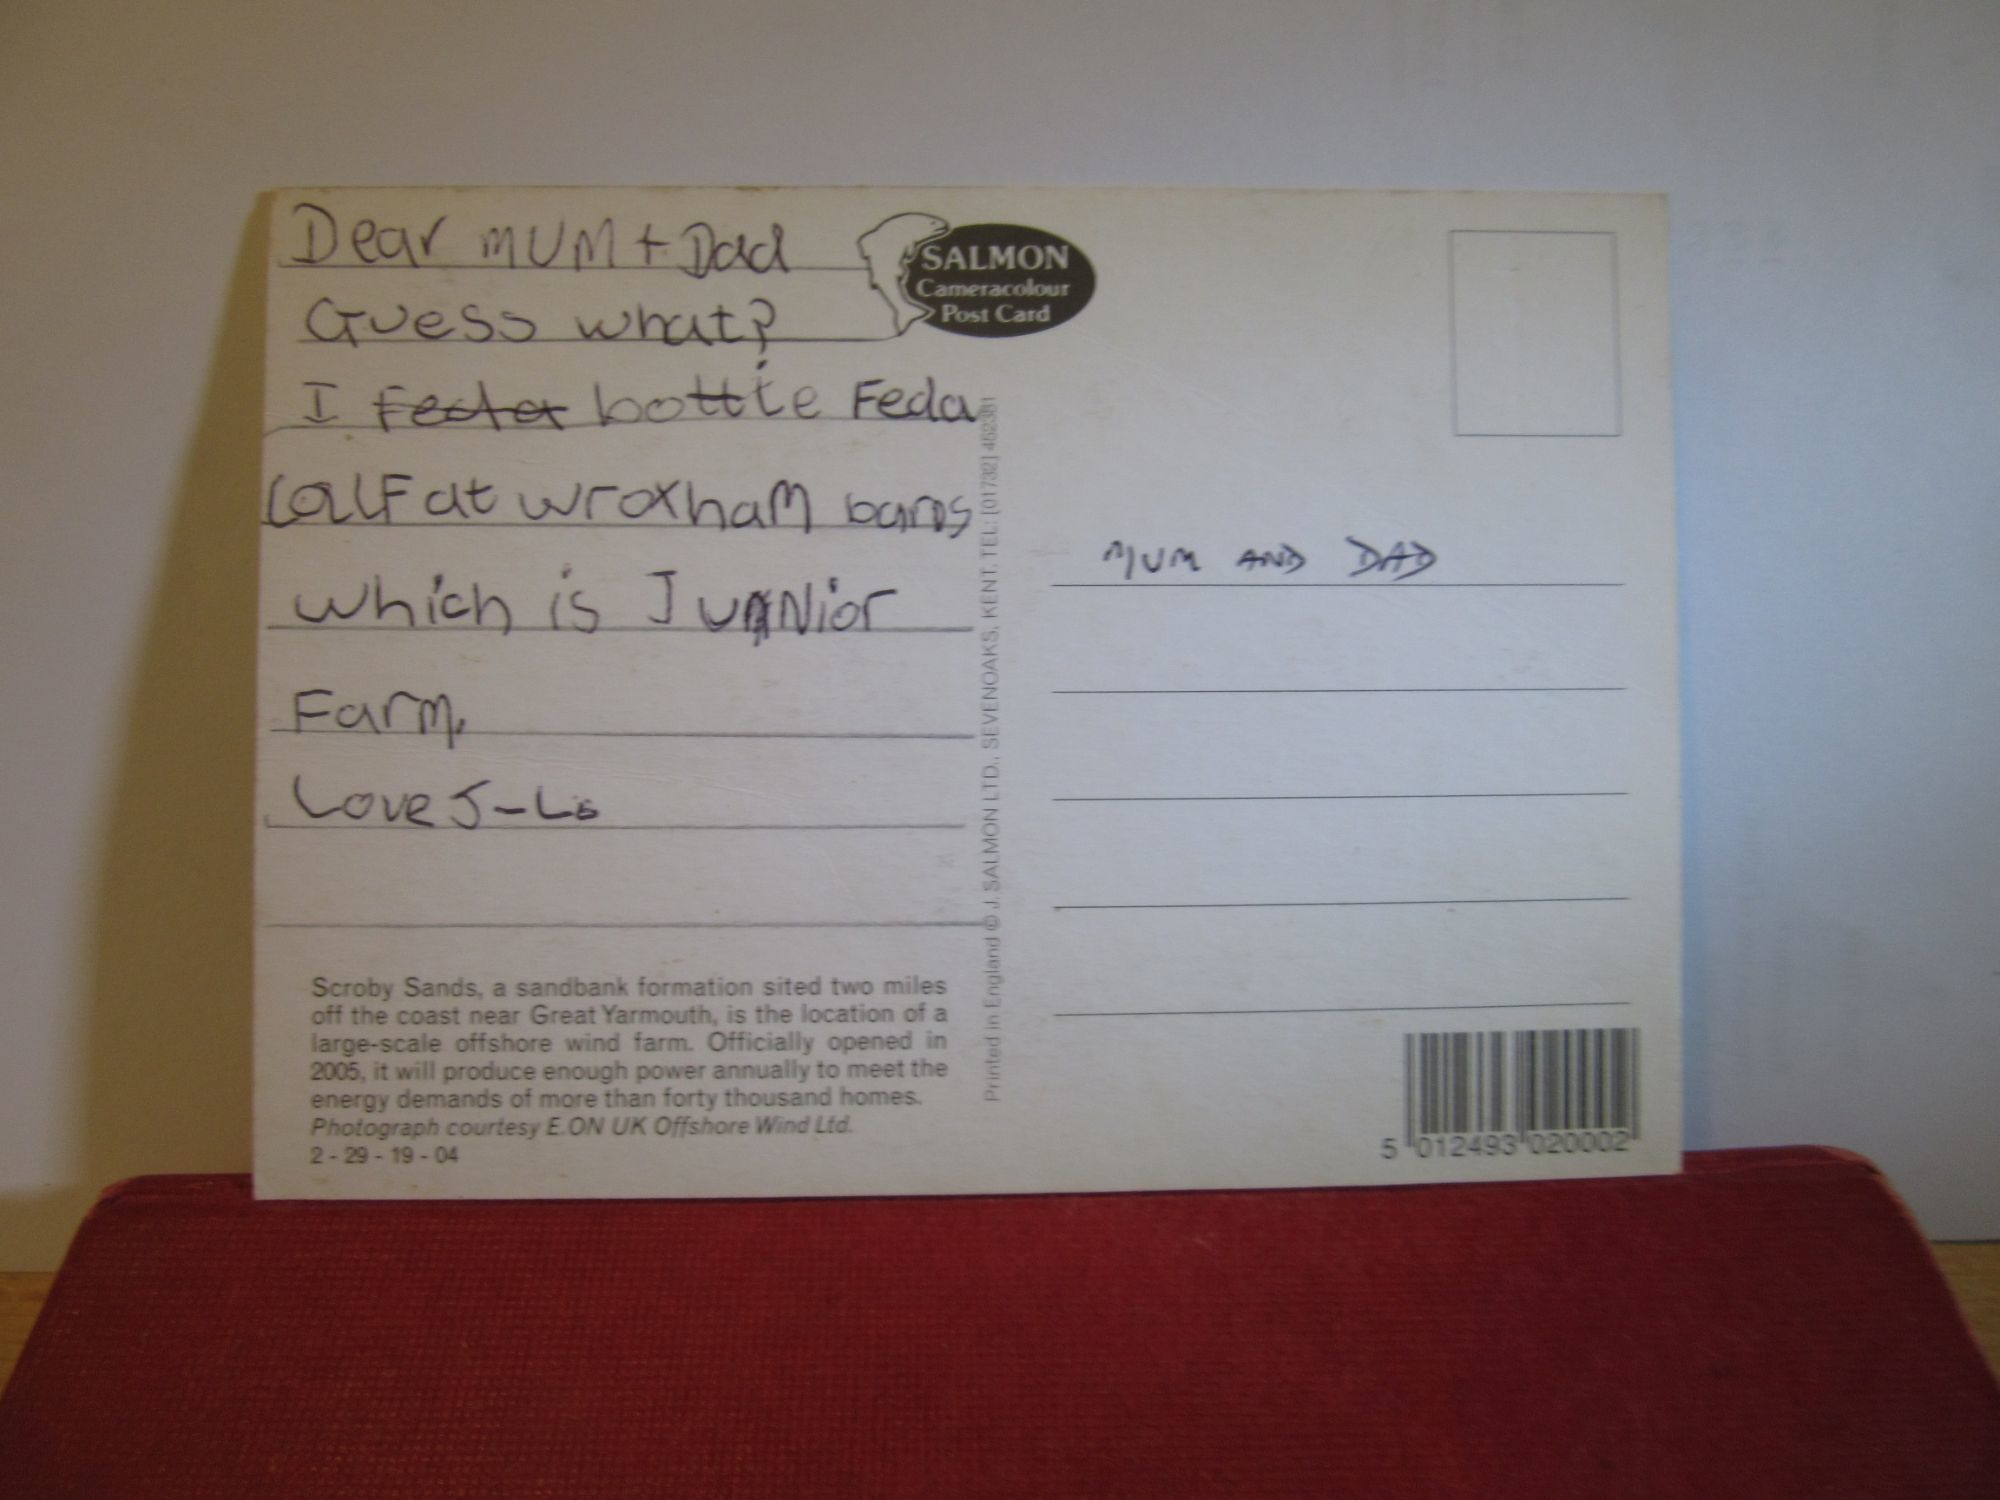 Dear MUM + Dad
Guess what?
I bottle Feda
CalF at wroxham barns
which is Junior
Farm.
Love J-Lo
SALMON
Cameracolour
Post Card
MUM AND DAD
Printed in England © J. SALMON LTD., SEVENOAKS, KENT, TEL: (01732) 452381
Scroby Sands, a sandbank formation sited two miles
off the coast near Great Yarmouth, is the location of a
large-scale offshore wind farm. Officially opened in
2005, it will produce enough power annually to meet the
energy demands of more than forty thousand homes.
Photograph courtesy E.ON UK Offshore Wind Ltd.
2 - 29 - 19 - 04
5 012493 020002